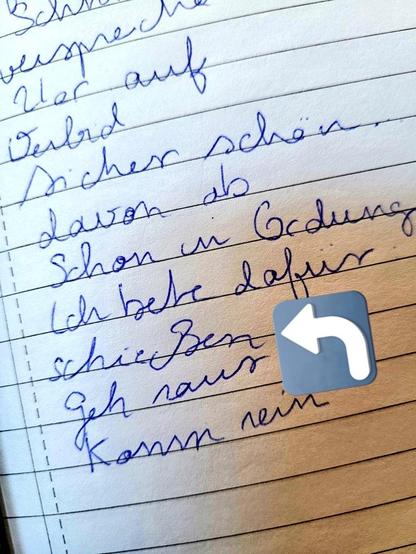 verspreche
auf
sicher schön...
davon ab
Schon in Ordung
Ich bete dafür
schießen
Geh raus
Komm rein